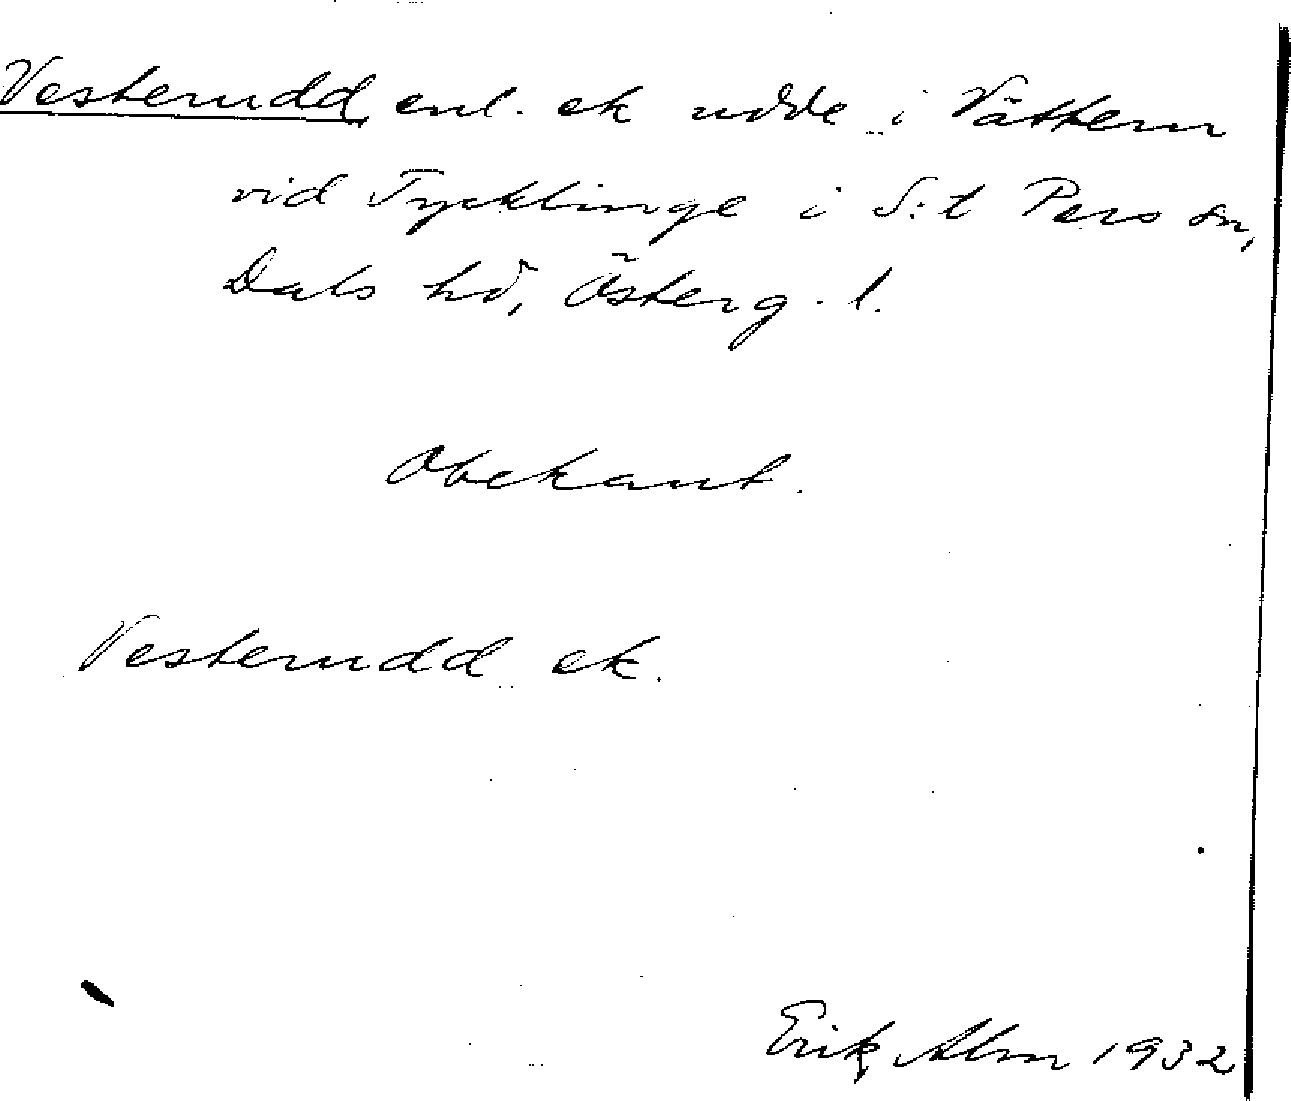 Vesterudd enl. ek udde i Vättern
vid Tycklinge i S:t Pers sn,
Dals hd, Österg. l.
Obekant.
Vesterudd ek.
Erik Alm 1932